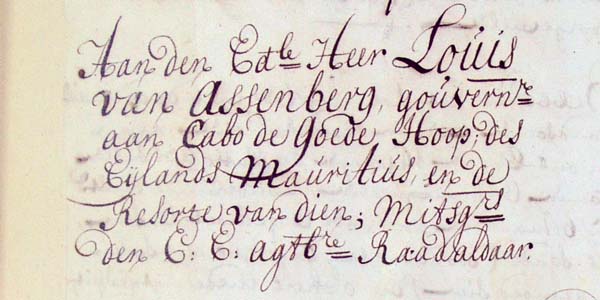 Aan den Edle Heer Loúis
van Assenberg, goúvernre
aan Cabo de Goede Hoop, des
Eÿlands Maúritiús, en de
Resorte van dien; Mitsgrs
den E: E: agtbre Raad aldaar.